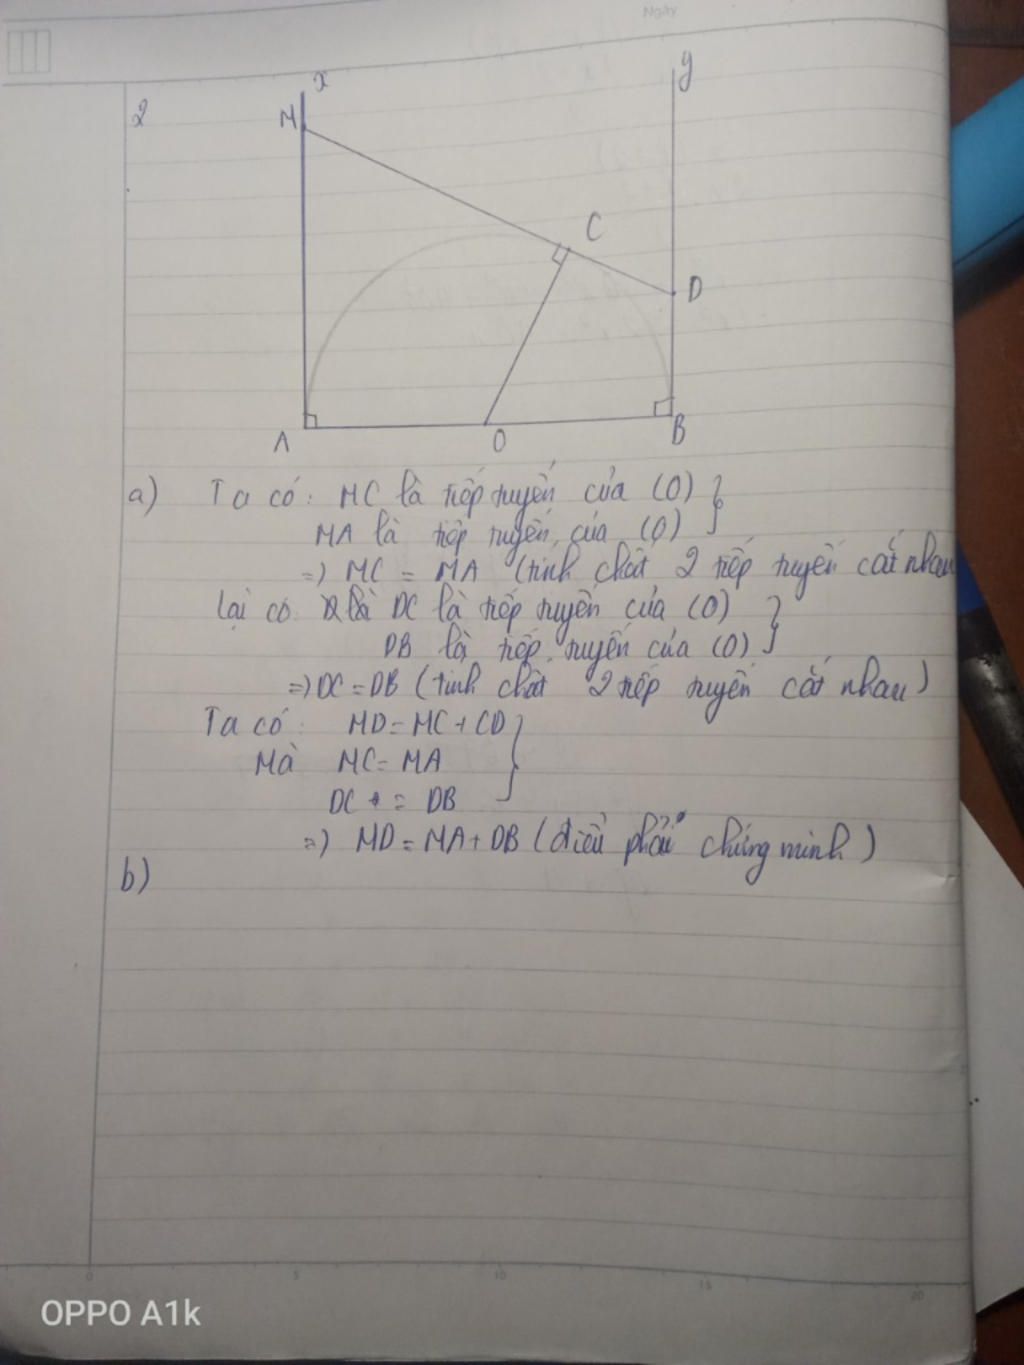 Ngày
2
x
y
M
C
D
A
O
B
a) Ta có: MC là tiếp tuyến của (O)
MA là tiếp tuyến của (O)
=) MC = MA (tính chất 2 tiếp tuyến cắt nhau
Lại có DC là tiếp tuyến của (O)
DB là tiếp tuyến của (O)
=) DC = DB (tính chất 2 tiếp tuyến cắt nhau)
Ta có: MD = MC + CD
Mà MC = MA
DC = DB
=) MD = MA + DB (điều phải chứng minh)
b)
0 5 10 15 20
OPPO A1k